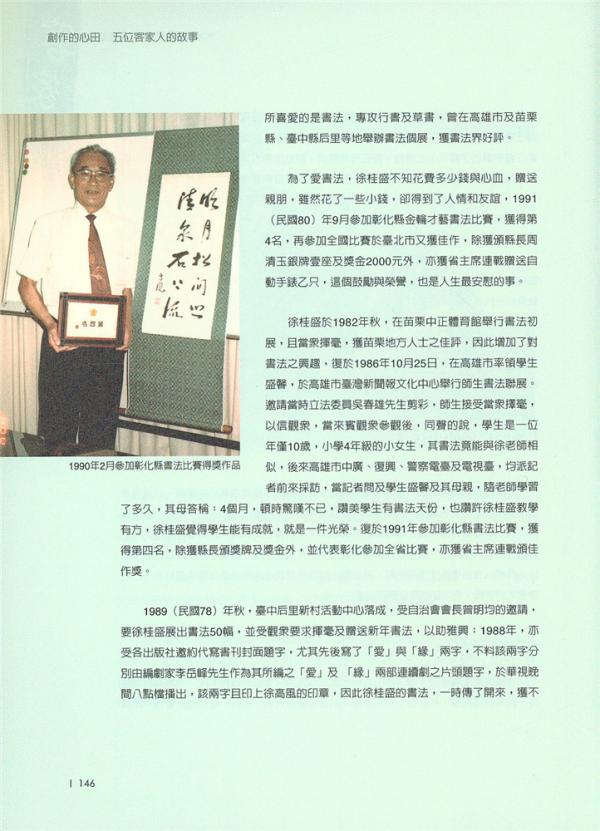 創作的心田　五位客家人的故事
所喜愛的是書法，專攻行書及草書，曾在高雄市及苗栗
縣、臺中縣后里等地舉辦書法個展，獲書法界好評。
為了愛書法，徐桂盛不知花費多少錢與心血，贈送
親朋，雖然花了一些小錢，卻得到了人情和友誼，1991
（民國80）年9月參加彰化縣金輪才藝書法比賽，獲得第
4名，再參加全國比賽於臺北市又獲佳作，除獲頒縣長周
清玉銀牌壹座及獎金2000元外，亦獲省主席連戰贈送自
動手錶乙只，這個鼓勵與榮譽，也是人生最安慰的事。
徐桂盛於1982年秋，在苗栗中正體育館舉行書法初
展，且當衆揮毫，獲苗栗地方人士之佳評，因此增加了對
書法之興趣，復於1986年10月25日，在高雄市率領學生
盛馨，於高雄市臺灣新聞報文化中心舉行師生書法聯展。
邀請當時立法委員吳春雄先生剪彩，師生接受當衆揮毫，
以信觀衆，當來賓觀衆參觀後，同聲的說，學生是一位
年僅10歲，小學4年級的小女生，其書法竟能與徐老師相
似，後來高雄市中廣、復興、警察電臺及電視臺，均派記
者前來採訪，當記者問及學生盛馨及其母親，隨老師學習
了多久，其母答稱：4個月，頓時驚嘆不已，讚美學生有書法天份，也讚許徐桂盛教學
有方，徐桂盛覺得學生能有成就，就是一件光榮。復於1991年參加彰化縣書法比賽，獲
得第四名，除獲縣長頒獎牌及獎金外，並代表彰化參加全省比賽，亦獲省主席連戰頒佳
作獎。
1989（民國78）年秋，臺中后里新村活動中心落成，受自治會會長曾明均的邀請，
要徐桂盛展出書法50幅，並受觀衆要求揮毫及贈送新年書法，以助雅興：1988年，亦
受各出版社邀約代寫書刊封面題字，尤其先後寫了「愛」與「緣」兩字，不料該兩字分
別由編劇家李岳峰先生作為其所編之「愛」及 「緣」兩部連續劇之片頭題字，於華視晚
間八點檔播出，該兩字且印上徐高風的印章，因此徐桂盛的書法，一時傳了開來，獲不
明月松間照
清泉石上流
名四第
1990年2月參加彰化縣書法比賽得獎作品
146